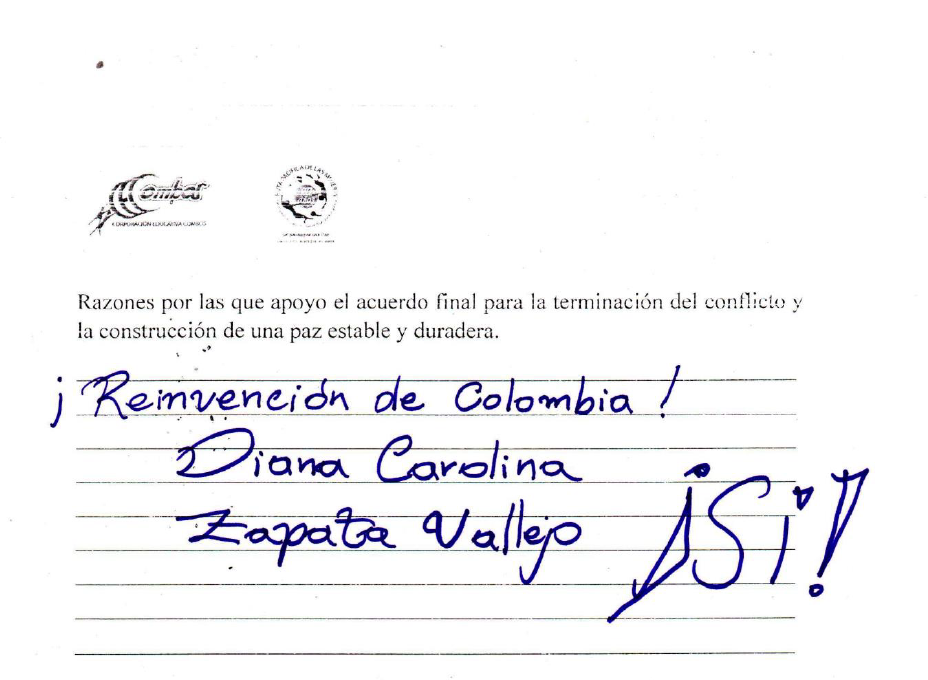 Combos
CORPORACIÓN EDUCATIVA COMBOS
Razones por las que apoyo el acuerdo final para la terminación del conflicto y
la construcción de una paz estable y duradera.
¡Reinvención de Colombia!
Diana Carolina
Zapata Vallejo
¡Si!